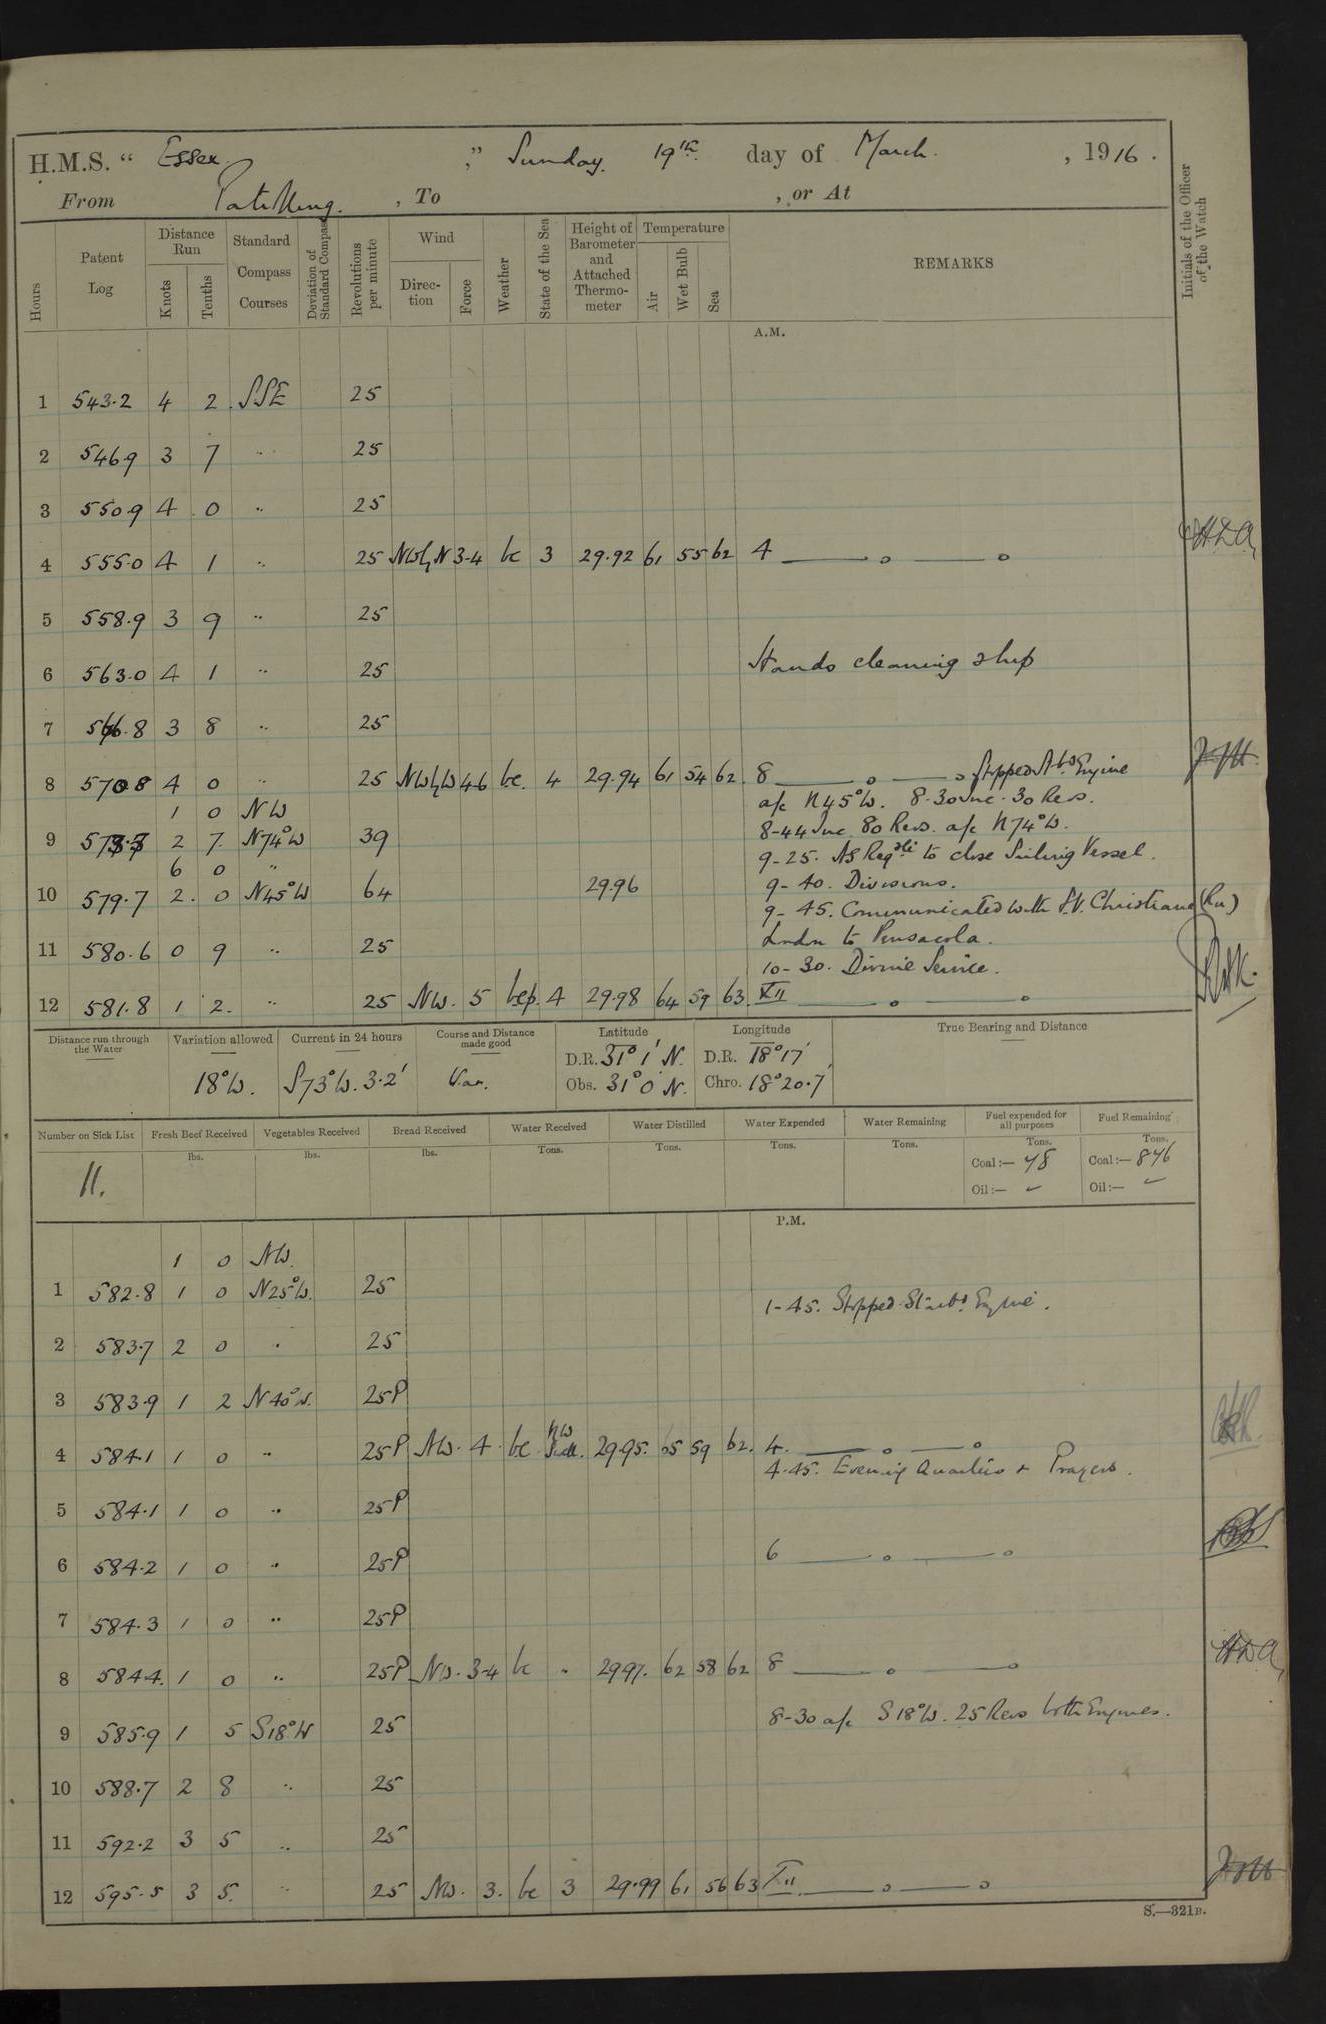 H.M.S. " Essex. ," Sunday. 19th. day of March. , 1916.
From Patrolling. , To , or At
Hours
Patent Log
Distance Run
Knots
Tenths
Standard Compass Courses
Deviation of Standard Compass
Revolutions per minute
Wind
Direction
Force
Weather
State of the Sea
Height of Barometer and Attached Thermometer
Temperature
Air
Wet Bulb
Sea
REMARKS
Initials of the Officer of the Watch
A.M.
1 543.2 4 2 SSE 25
2 546.9 3 7 " 25
3 550.9 4 0 " 25
4 555.0 4 1 " 25 NWbyN 3-4 bc 3 29.92 61 55 62 4 HDA
5 558.9 3 9 " 25
6 563.0 4 1 " 25 Hands cleaning ship
7 566.8 3 8 " 25
8 570.8 4 0 " 25 NWbyW 4-6 bc. 4 29.94 61 54 62 8 Stopped Stbd Engine
1 0 NW a/c N45°W. 8-30 Inc. 30 Revs.
9 573.3 2 7 N74°W 39 8-44 Inc. 80 Revs. a/c N74°W.
6 0 " 9-25. As Reqsite to close Sailing Vessel.
10 579.7 2.0 N45°W 64 29.96 9-40. Divisions.
9-45. Communicated with S.V. Christiane (Ru)
11 580.6 0 9 " 25 London to Pensacola.
10-30. Divine Service.
12 581.8 1 2. " 25 NW. 5 bcp. 4 29.98 64 59 63. XII
Distance run through the Water
Variation allowed 18°W.
Current in 24 hours S73°W. 3.2'
Course and Distance made good Var.
Latitude D.R. 31° 1' N. Obs. 31° 0' N.
Longitude D.R. 18° 17' Chro. 18° 20.7'
True Bearing and Distance
Number on Sick List 11.
Fresh Beef Received lbs.
Vegetables Received lbs.
Bread Received lbs.
Water Received Tons.
Water Distilled Tons.
Water Expended Tons.
Water Remaining Tons.
Fuel expended for all purposes Tons. Coal :— 48 Oil :— –
Fuel Remaining Tons. Coal :— 846 Oil :— –
P.M.
1 0 NW.
1 582.8 1 0 N25°W. 25
1-45. Stopped Starbd Engine.
2 583.7 2 0 " 25
3 583.9 1 2 N40°W. 25P
4 584.1 1 0 " 25P NW. 4. bc NW Swell. 29.95. 65 59 62. 4.
4-45. Evening Quarters & Prayers.
5 584.1 1 0 " 25P
6 584.2 1 0 " 25P 6
7 584.3 1 0 " 25P
8 584.4. 1 0 " 25P NW. 3-4 bc " 29.97. 62 58 62 8 HDA
9 585.9 1 5 S18°W 25 8-30 a/c S18°W. 25 Revs both Engines.
10 588.7 2 8 " 25
11 592.2 3 5 " 25
12 595.5 3 5. " 25 NW. 3. bc 3 29.99 61 56 63 XII
S.—321B.